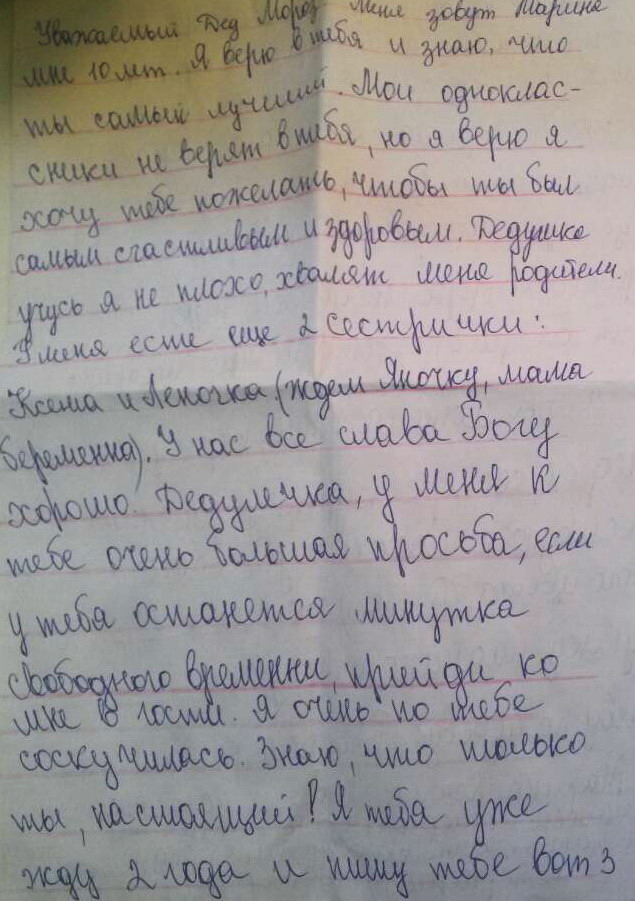 Уважаемый Дед Мороз Меня зовут Марина
мне 10 лет. Я верю в тебя и знаю, что
ты самый лучший. Мои одноклас-
сники не верят в тебя, но я верю я
хочу тебе пожелать, чтобы ты был
самым счастливым и здоровым. Дедушка
учусь я не плохо, хвалят меня родители.
У меня есте еще 2 сестрички:
Ксюша и Леночка (ждем Яночку, мама
беременна). У нас все слава Богу
хорошо. Дедулечка, у меня к
тебе очень большая просьба, если
у тебя останется минутка
свободного временни, прийди ко
мне в гости. Я очень по тебе
соскучилась. Знаю, что только
ты, настоящий! Я тебя уже
жду 2 года и пишу тебе вот 3